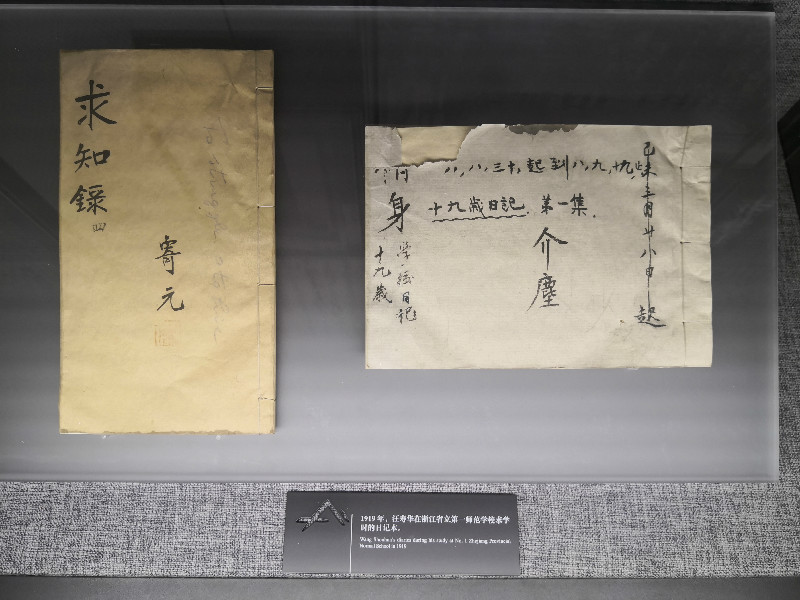 求知錄
四
寄元
己未三月廿八日起
八,八,三十,起到八,九,十九,止
十九歲日記.第一集.
介塵
身
学絃日记
十九歲
1919年，汪寿华在浙江省立第一师范学校求学
时的日记本。
Wang Shouhua's diaries during his study at No. 1 Zhejiang Provincial
Normal School in 1919